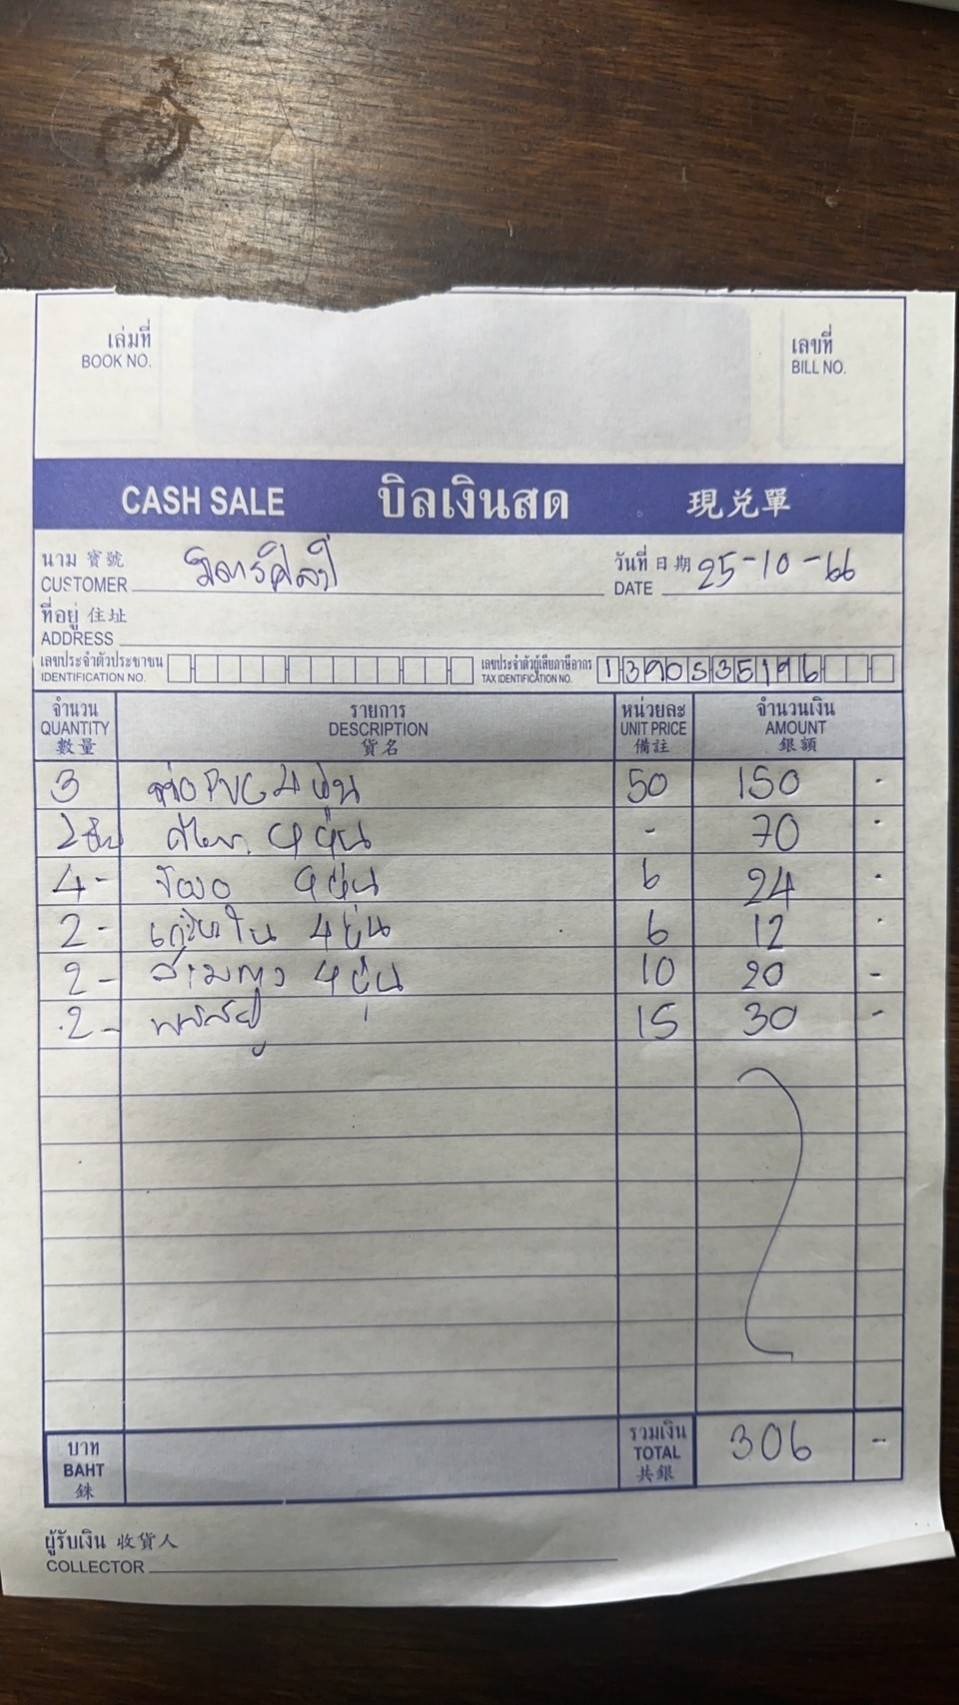 เล่มที่
BOOK NO.
เลขที่
BILL NO.
CASH SALE บิลเงินสด 現兌單
นาม 寶號
CUSTOMER
วันที่ 日期 25-10-66
DATE
ที่อยู่ 住址
ADDRESS
เลขประจำตัวประชาชน
IDENTIFICATION NO.
เลขประจำตัวผู้เสียภาษีอากร
TAX IDENTIFICATION NO.
จำนวน รายการ หน่วยละ จำนวนเงิน
QUANTITY DESCRIPTION UNIT PRICE AMOUNT
數量 貨名 備註 銀額
3 ท่อ PVC 4 หุน 50 150 -
70 -
4 - ข้องอ 4 หุน 6 24 -
2 - เกลียวใน 4 หุน 6 12 -
2 - สามทาง 4 หุน 10 20 -
2 - 15 30 -
บาท รวมเงิน
BAHT TOTAL 306 -
銖 共銀
ผู้รับเงิน 收貨人
COLLECTOR